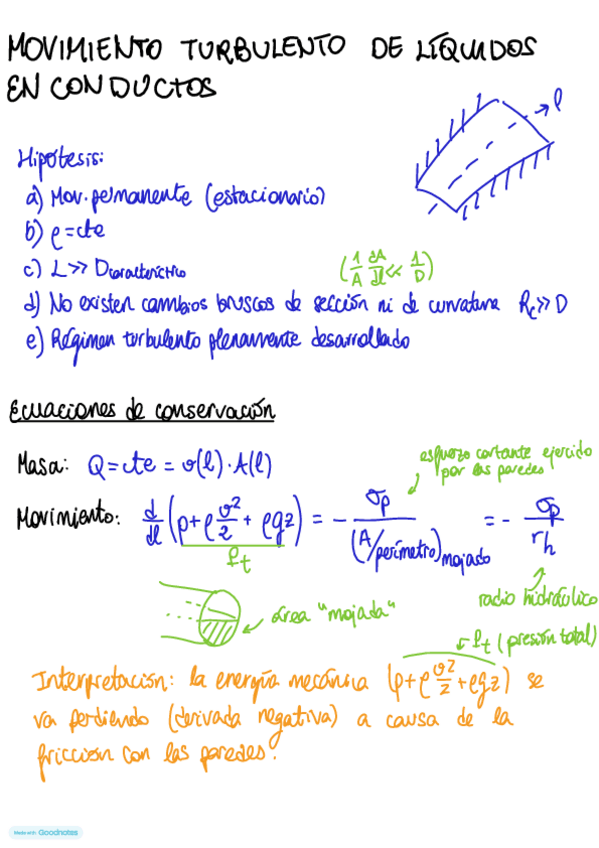 MOVIMIENTO TURBULENTO DE LÍQUIDOS
EN CONDUCTOS
l
Hipótesis:
a) Mov. permanente (estacionario)
b) ρ = cte
c) L >> Dcaracterístico (1/A dA/dl << 1/D)
d) No existen cambios bruscos de sección ni de curvatura Rc >> D
e) Régimen turbulento plenamente desarrollado
Ecuaciones de conservación
Masa: Q = cte = v(l) · A(l)
esfuerzo cortante ejercido
por las paredes
Movimiento: d/dl (p + ρ v²/2 + ρgz) = - σp / (A/perímetro)mojado = - σp / rh
Pt
área "mojada"
radio hidráulico
Pt (presión total)
Interpretación: la energía mecánica (p + ρ v²/2 + ρgz) se
va perdiendo (derivada negativa) a causa de la
fricción con las paredes.
Made with Goodnotes